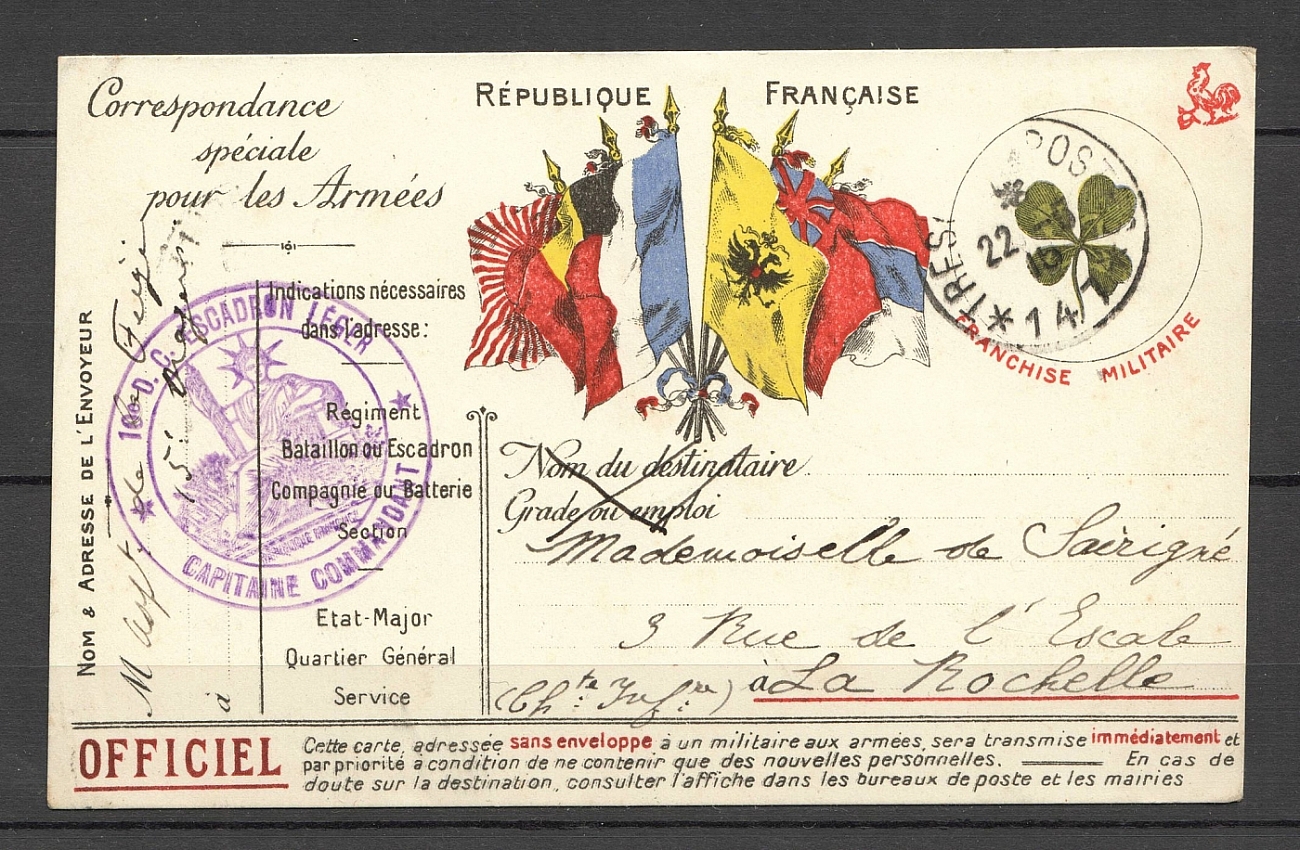 Correspondance
spéciale
pour les Armées
RÉPUBLIQUE FRANÇAISE
POST
22
147
FRANCHISE MILITAIRE
NOM & ADRESSE DE L'ENVOYEUR
M
de
15
à
ESCADRON LÉGER
CAPITAINE COMMANDANT
Indications nécessaires
dans l'adresse:
Régiment
Bataillon ou Escadron
Compagnie ou Batterie
Section
Etat-Major
Quartier Général
Service
Nom du destinataire
Grade ou emploi
Mademoiselle de Sairigné
3 Rue de l'Escale
à La Rochelle
(Ch:te Inf:re)
OFFICIEL
Cette carte, adressée sans enveloppe à un militaire aux armées, sera transmise immédiatement et
par priorité à condition de ne contenir que des nouvelles personnelles. ——— En cas de
doute sur la destination, consulter l'affiche dans les bureaux de poste et les mairies